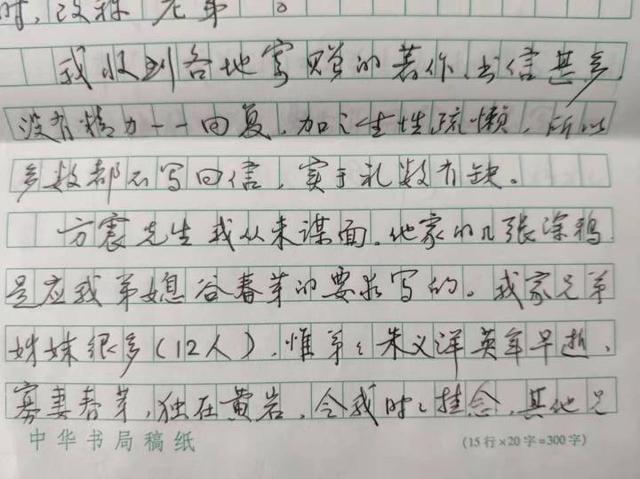 时,改称老弟。
我收到各地寄赠的著作、书信甚多,
没有精力一一回复,加之生性疏懒,所以
多数都不写回信,实于礼数有缺。
方震先生我从未谋面,他家的几张涂鸦
是应我弟媳谷春芽的要求写的。我家兄弟
姊妹很多(12人),惟弟弟朱义洋英年早逝,
寡妻春芽,独在黄岩,令我时时挂念,其他兄
中华书局稿纸 (15行×20字=300字)